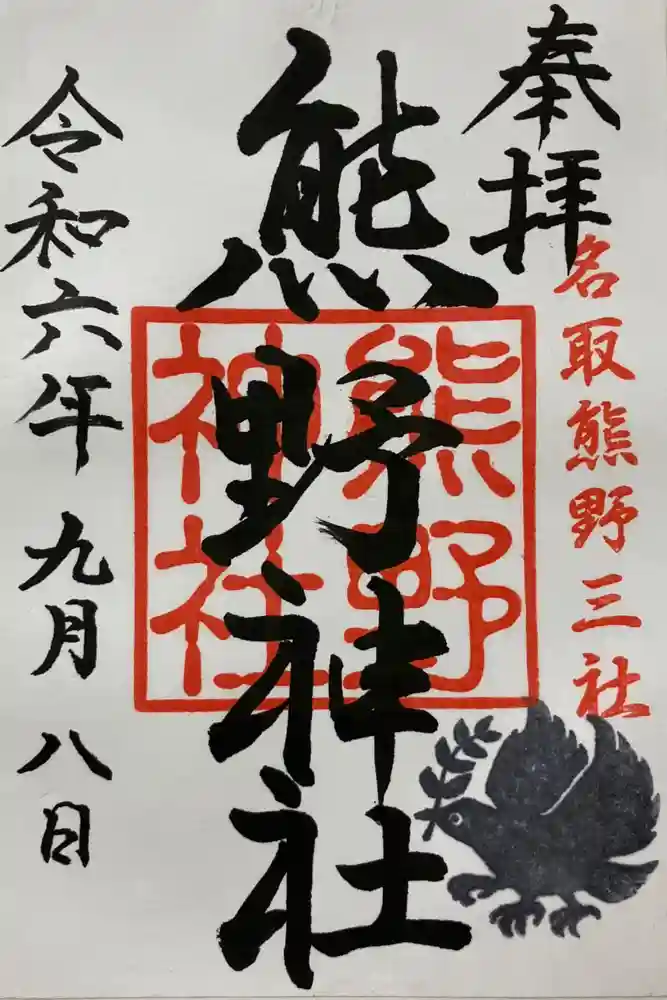 奉拝
名取熊野三社
熊野神社
熊野
神社
令和六年九月八日